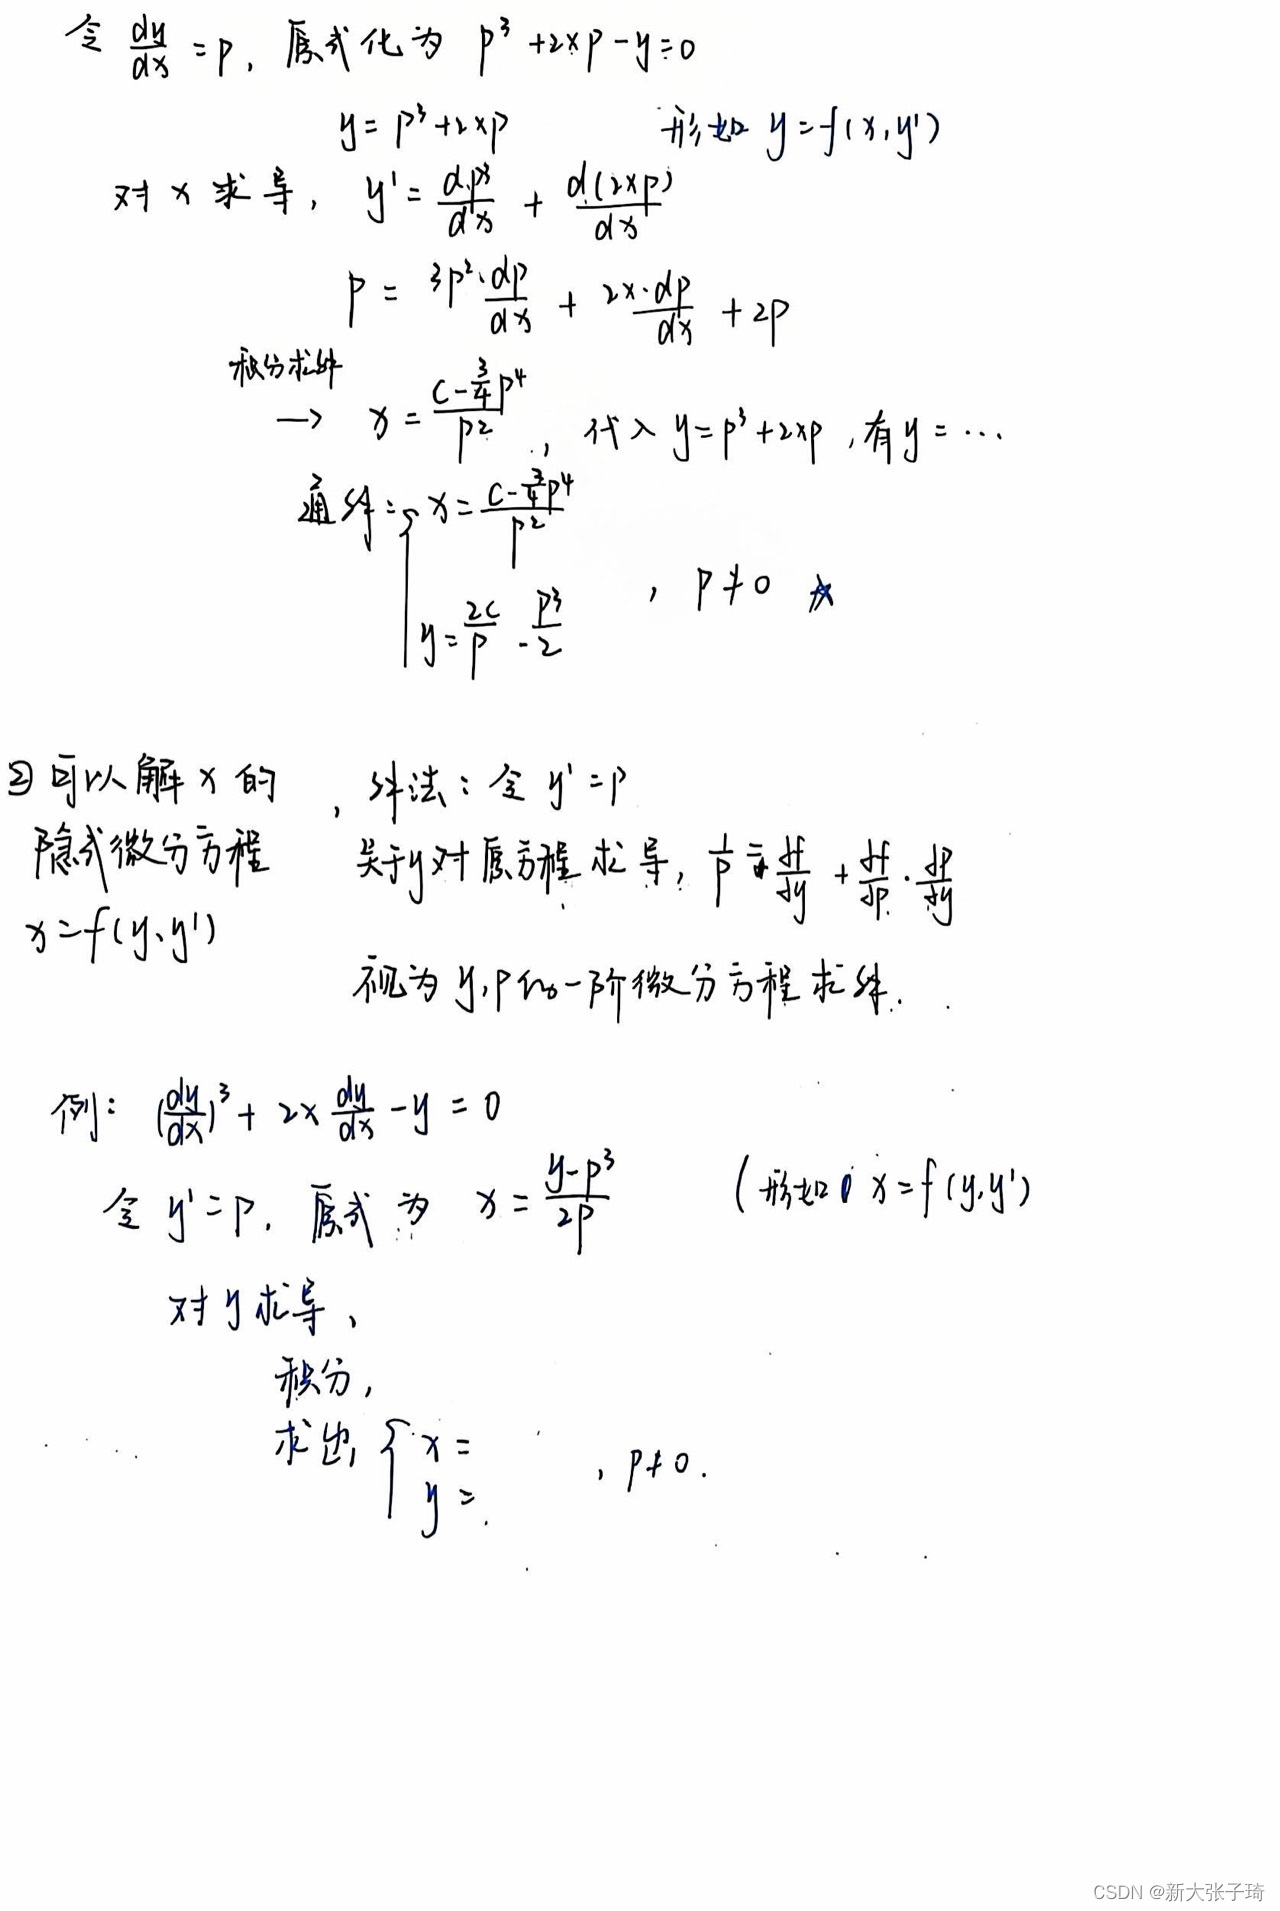 令 dy/dx = p, 原式化为 p³+2xp-y=0
y = p³+2xp 形如 y=f(x,y')
对 x 求导, y' = dp³/dx + d(2xp)/dx
p = 3p²·dp/dx + 2x·dp/dx + 2p
积分求解
→ x = (c-¾p⁴)/p², 代入 y=p³+2xp, 有 y=…
通解: { x = (c-¾p⁴)/p²
y = 2c/p - p³/2 , p≠0
② 可以解 x 的 , 解法: 令 y'=p
隐式微分方程 关于y对原方程求导, 1/p = ∂f/∂y + ∂f/∂p · ∂p/∂y
x=f(y,y')
视为 y,p的一阶微分方程求解.
例: (dy/dx)³ + 2x dy/dx - y = 0
令 y'=p, 原式为 x = (y-p³)/2p (形如 x=f(y,y')
对 y 求导,
积分,
求出 { x =
y = , p≠0.
CSDN @新大张子琦